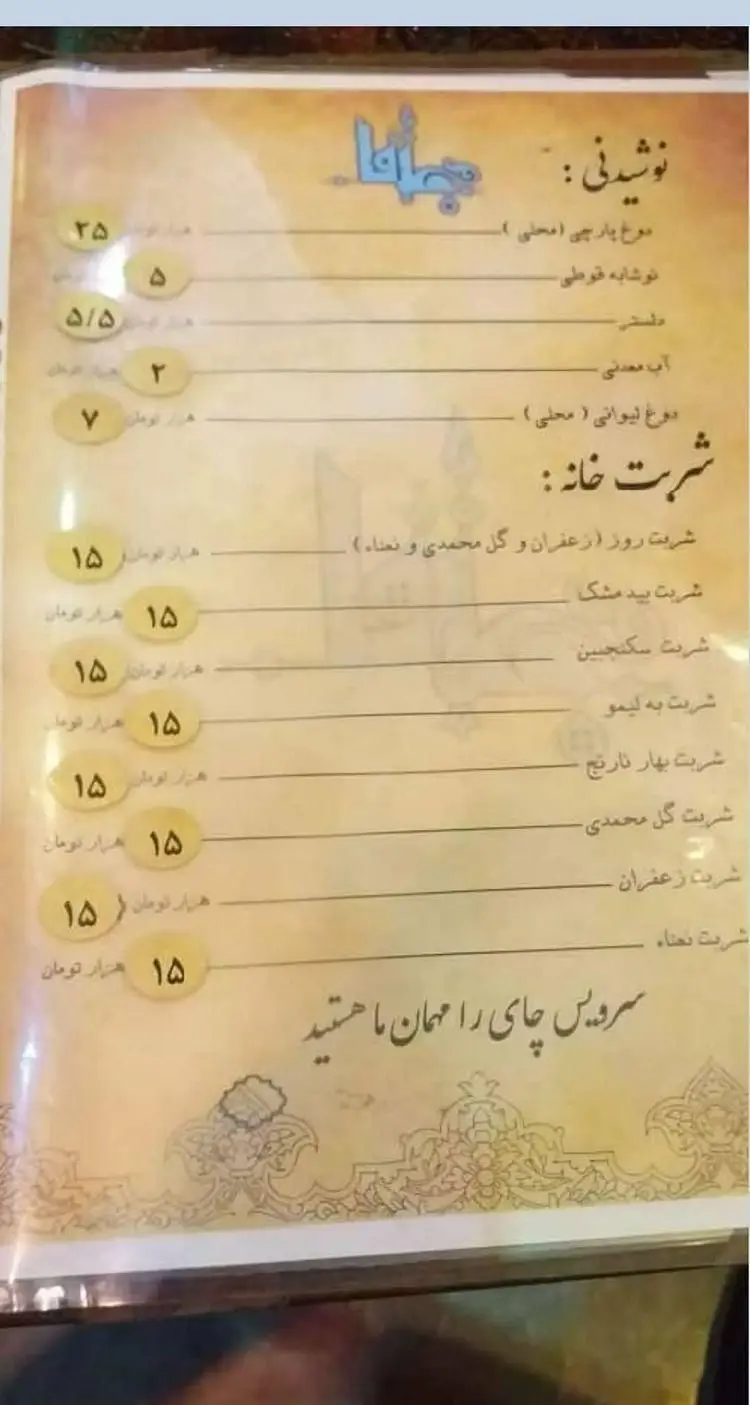 نوشیدنی :
دوغ پارچی (محلی ) هزار تومان ۲۵
نوشابه قوطی ۵
دلستر هزار تومان ۵/۵
آب معدنی ۲ هزار تومان
دوغ لیوانی ( محلی ) هزار تومان ۷
شربت خانه :
شربت روز (زعفران و گل محمدی و نعناء) هزار تومان ۱۵
شربت بید مشک ۱۵ هزار تومان
شربت سکنجبین هزار تومان ۱۵
شربت به لیمو ۱۵ هزار تومان
شربت بهار نارنج هزار تومان ۱۵
شربت گل محمدی ۱۵ هزار تومان
شربت زعفران هزار تومان ۱۵
شربت نعناء ۱۵ هزار تومان
سرویس چای را مهمان ما هستید